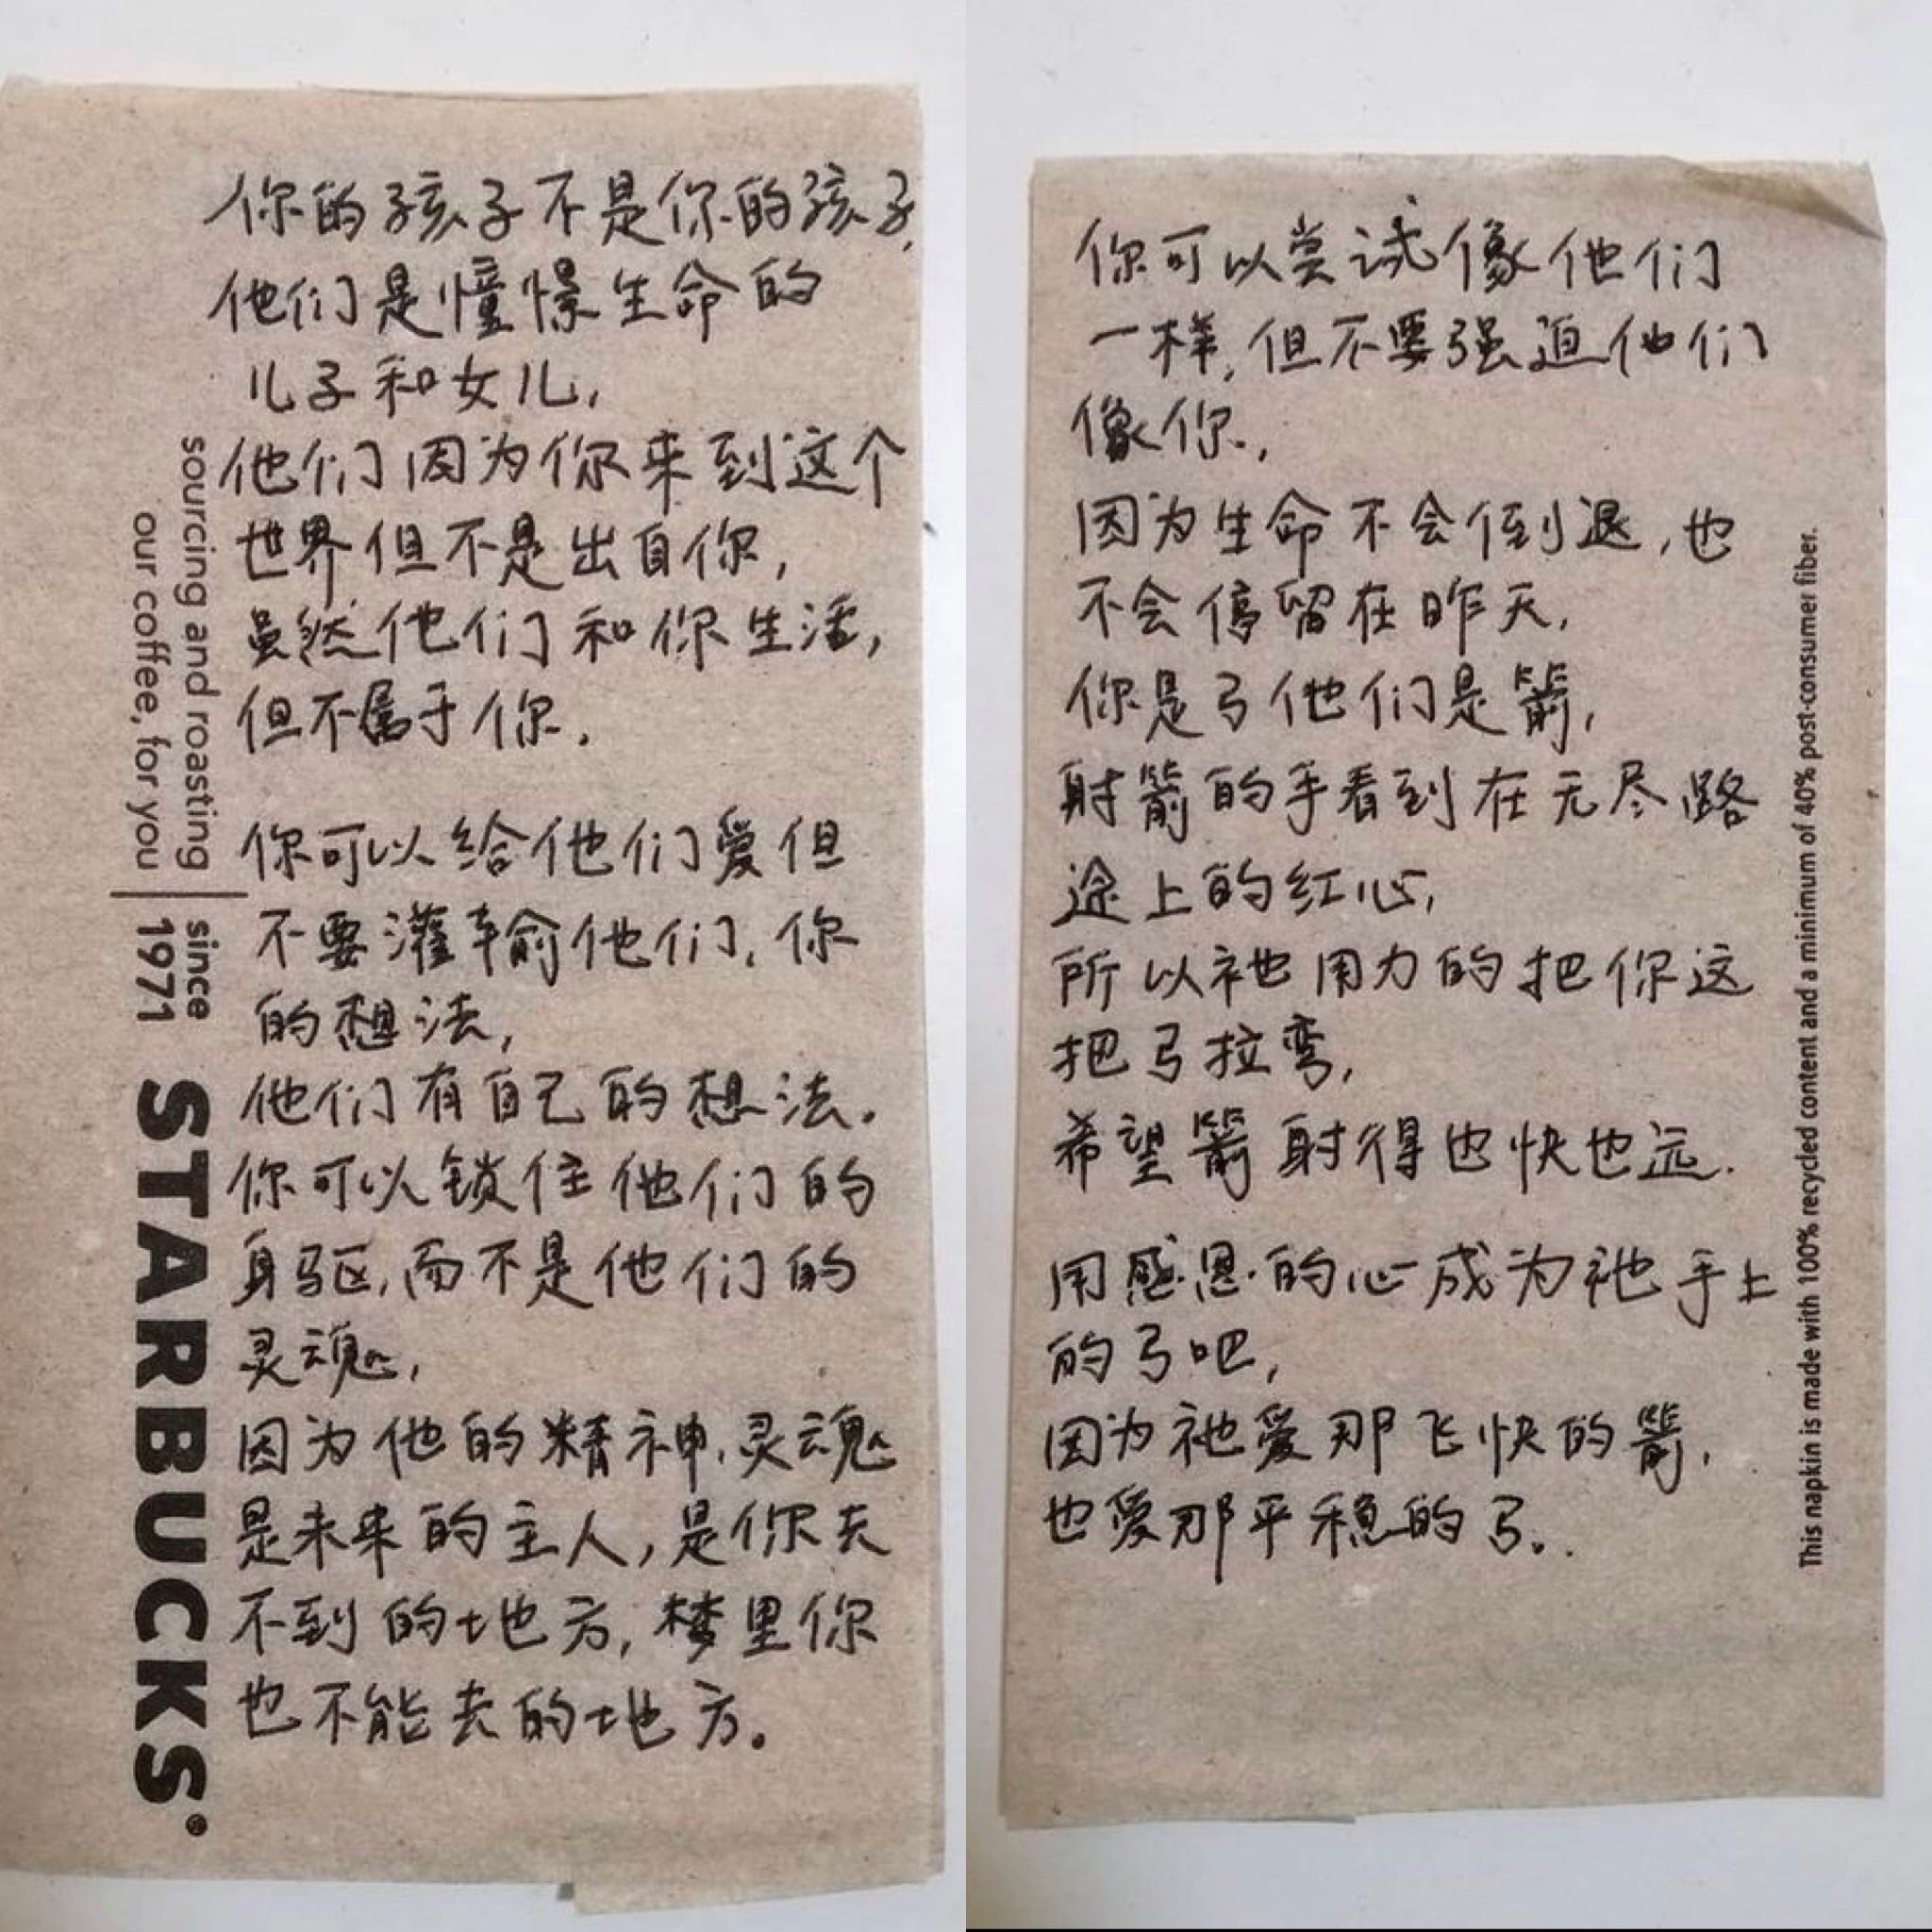 你的孩子不是你的孩子,
他们是憧憬生命的
儿子和女儿,
他们因为你来到这个
世界但不是出自你,
虽然他们和你生活,
但不属于你.
你可以给他们爱但
不要灌输他们,你
的想法,
他们有自己的想法.
你可以锁住他们的
身驱,而不是他们的
灵魂,
因为他的精神,灵魂
是未来的主人,是你去
不到的地方,梦里你
也不能去的地方。
sourcing and roasting
our coffee, for you
since
1971
STARBUCKS®
你可以尝试像他们
一样,但不要强迫他们
像你.,
因为生命不会倒退,也
不会停留在昨天,
你是弓他们是箭,
射箭的手看到在无尽路
途上的红心,
所以祂用力的把你这
把弓拉弯,
希望箭射得也快也远.
用感恩的心成为祂手上
的弓吧,
因为祂爱那飞快的箭,
也爱那平稳的弓..
This napkin is made with 100% recycled content and a minimum of 40% post-consumer fiber.